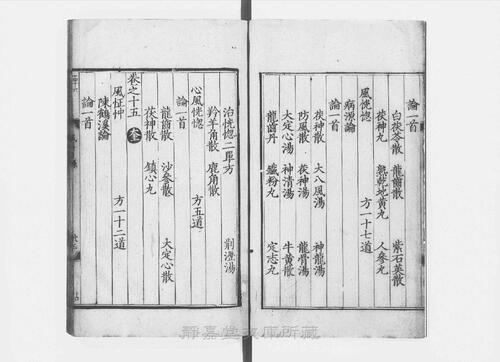 論一首
白茯苓散 龍齒散 紫石英散
茯神丸 熟乾地黃丸 人參丸
風恍惚 方一十七道
病源論
論一首
茯神散 大八風湯 神龍湯
防風散 茯神湯 龍骨湯
大定心湯 神清湯 牛黃散
龍齒丹 蠟粉丸 定志丸
治恍惚二單方
羚羊角散 鹿角散 荊瀝湯
心風恍惚 方五道
論一首
龍齒散 沙參散 大定心散
茯神散 鎮心丸
卷之十五
風怔忡 方一十二道
陳鶴溪論
論一首
靜嘉堂文庫所藏